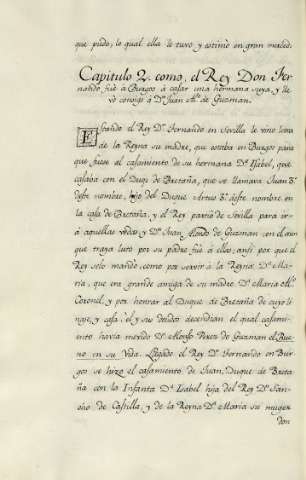 que pudo, lo qual ella le tuvo, y estimò en gran merced.
Capitulo 2. como, el Rey Don Fer
nando, fuè a Burgos à casar una hermana suya, y lle
vò consigo à Dⁿ Juan Alº de Guzman.
Estando el Rey Dⁿ Fernando en Sevilla le vino
de la Reyna su madre, que estaba en Burgos para
que fuese al casamiento de su hermana Dª Isabel, que
casaba con el Duqe de Bretaña, que se llamava Juan 3º
deste nombre, hijo del Duque Artus 2º deste nombre en
la casa de Bretaña, y el Rey partiò de Sevilla para ir
à aquellas vodas, y Dⁿ Juan Alonso de Guzman con el aun
que traya luto por su padre fuè à ellas; assi por que el
Rey selo mandò, como por servir à la Reyna Dª Ma-
ria, que era grande amiga de su madre Dª Maria Alº
Coronel, y por honrar al Duque de Bretaña de cuyo li
naje, y casa el y sus deudos decendian el qual casami-
ento havia movido Dⁿ Alonso Perez de Guzman el Bue
no en su vida. Llegado el Rey Dⁿ Fernando en Bur-
gos se hizo el casamiento de Juan Duque de Breta
ña con la Infanta Dª Isabel hija del Rey Dⁿ San-
cho de Castilla, y de la Reyna Dª Maria su muger
don